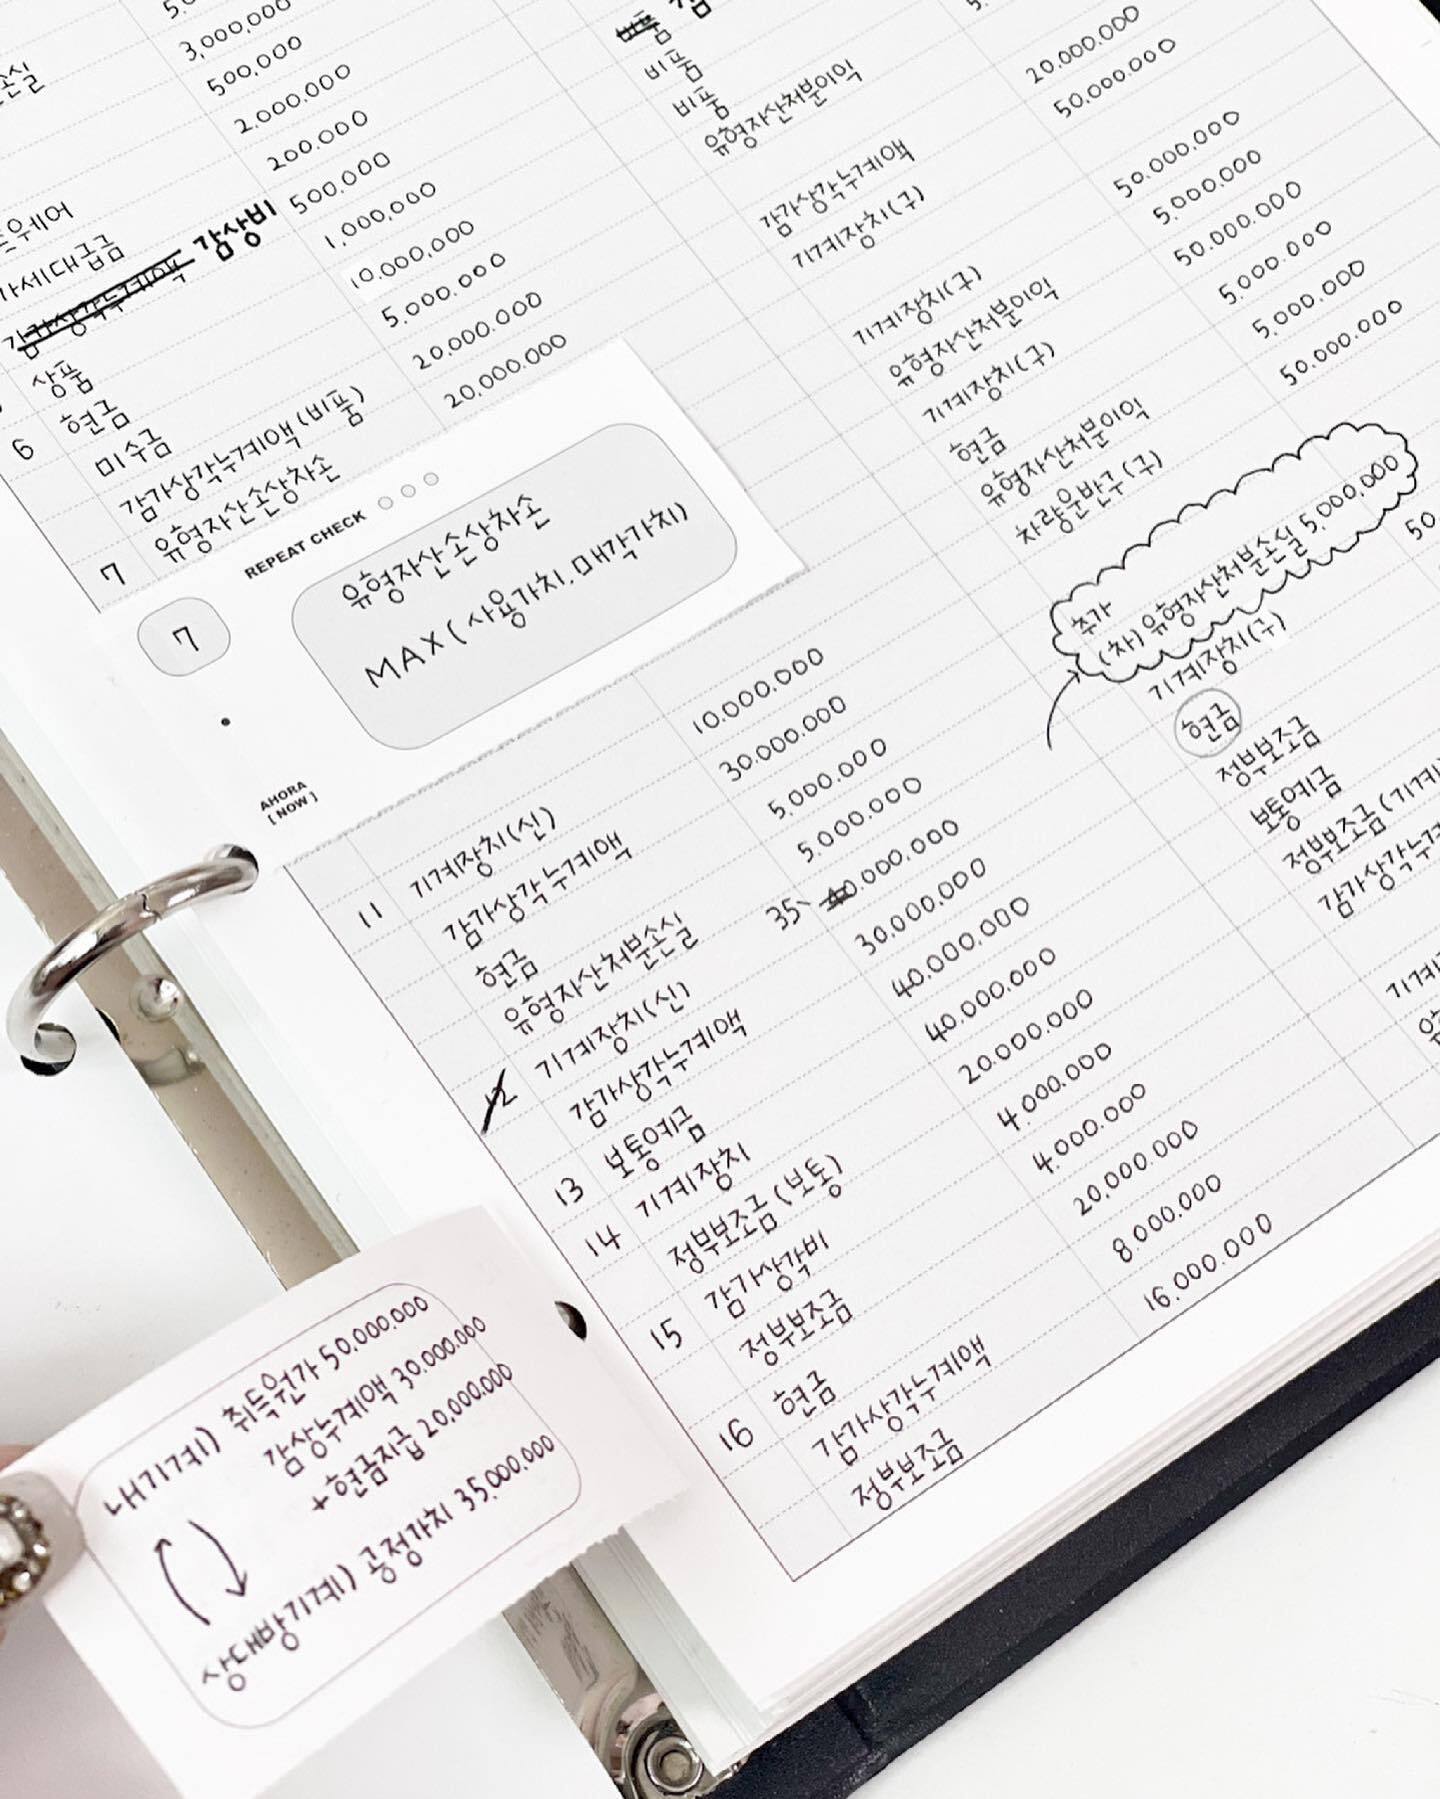 3,000,000
500,000
2.000.000
200.000
500.000
1,000,000
10.000,000
5.000.000
20.000.000
20.000.000
가세대급금
감가상각누계액 감상비
상품
6 현금
미수금
감가상각누계액(비품)
7 유형자산손상차손
비품
비품
유형자산처분이익
감가상각누계액
기계장치(구)
기계장치(구)
유형자산처분이익
기계장치(구)
현금
유형자산처분이익
차량운반구(구)
20.000.000
50.000.000
50.000.000
5.000.000
50.000.000
5.000.000
5.000.000
50.000.000
추가
(차)유형자산처분손실 5,000,000
기계장치(구)
현금
정부보조금
보통예금
정부보조금(기계
감가상각누계
REPEAT CHECK
7
유형자산손상차손
MAX(사용가치.매각가치)
AHORA
[NOW]
11 기계장치(신) 10.000.000
감가상각누계액 30.000.000
현금 5.000.000
유형자산처분손실 5.000.000
12 기계장치(신) 35, 40.000.000
감가상각누계액 30.000.000
13 보통예금 40.000.000
14 기계장치 40.000.000
정부보조금(보통) 20.000.000
15 감가상각비 4.000.000
정부보조금 4.000.000
16 현금 20.000.000
감가상각누계액 8.000.000
정부보조금 16.000.000
내기계) 취득원가 50,000,000
감상누계액 30.000.000
+현금지급 20,000.000
상대방기계) 공정가치 35,000,000